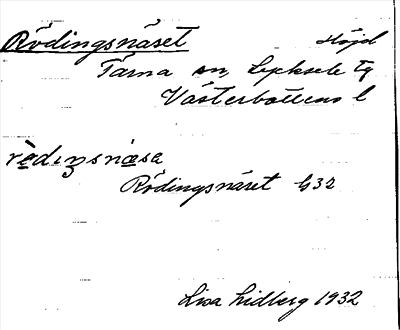 Rödingsnäset Höjd
Tärna sn, Lycksele tg
Västerbottens l
Rödingsnäset G32
Lisa Lidberg 1932